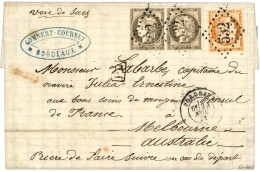 Voie de Suez
LOUVERT-COURSEL
BORDEAUX
Monsieur Labarbe, capitaine du
navire Julia Ernestine
aux bons soins de monsieur Consul
de France
à Melbourne
Australie
BORDEAUX
532
Prière de faire suivre en cas de départ